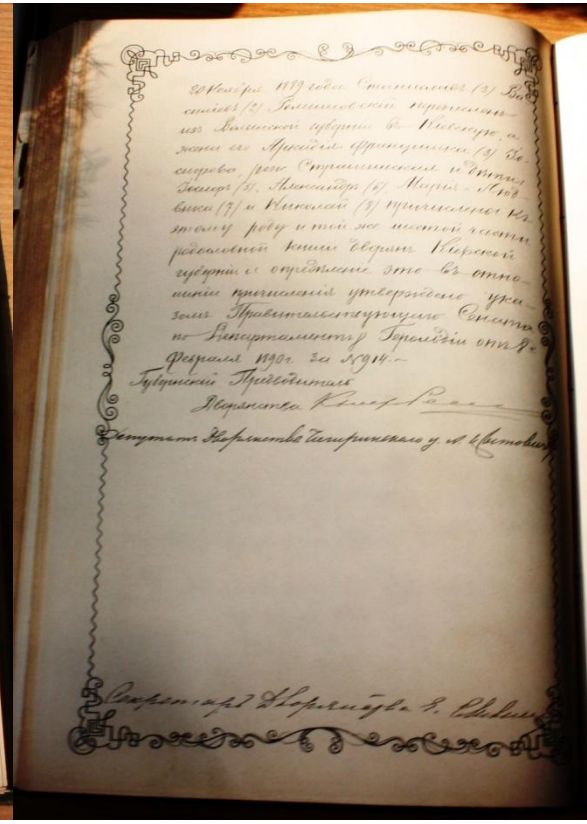 20 Ноября 1889 года Станиславъ (3) Ва
сильевъ (2) перечисленъ
изъ Волынской губерніи въ Кіевскую, а
жена его Аркадія-Франциска (3) Іо
сифова, рожд. и дѣти
Іосифъ (5), Александръ (6) Марія-Люд
вика (7) и Николай (8) причислены къ
этому роду и той же шестой части
родословной книги дворянъ Кіевской
губерніи и опредѣленіе это въ отно-
шеніи причисленія утверждено ука
зомъ Правительствующаго Сената
по Департаменту Герольдіи отъ 8-
Февраля 1890 г. за №914.-
Губернскій Предводитель
Дворянства
Депутатъ Дворянства Чигиринскаго у.
Секретарь Дворянства